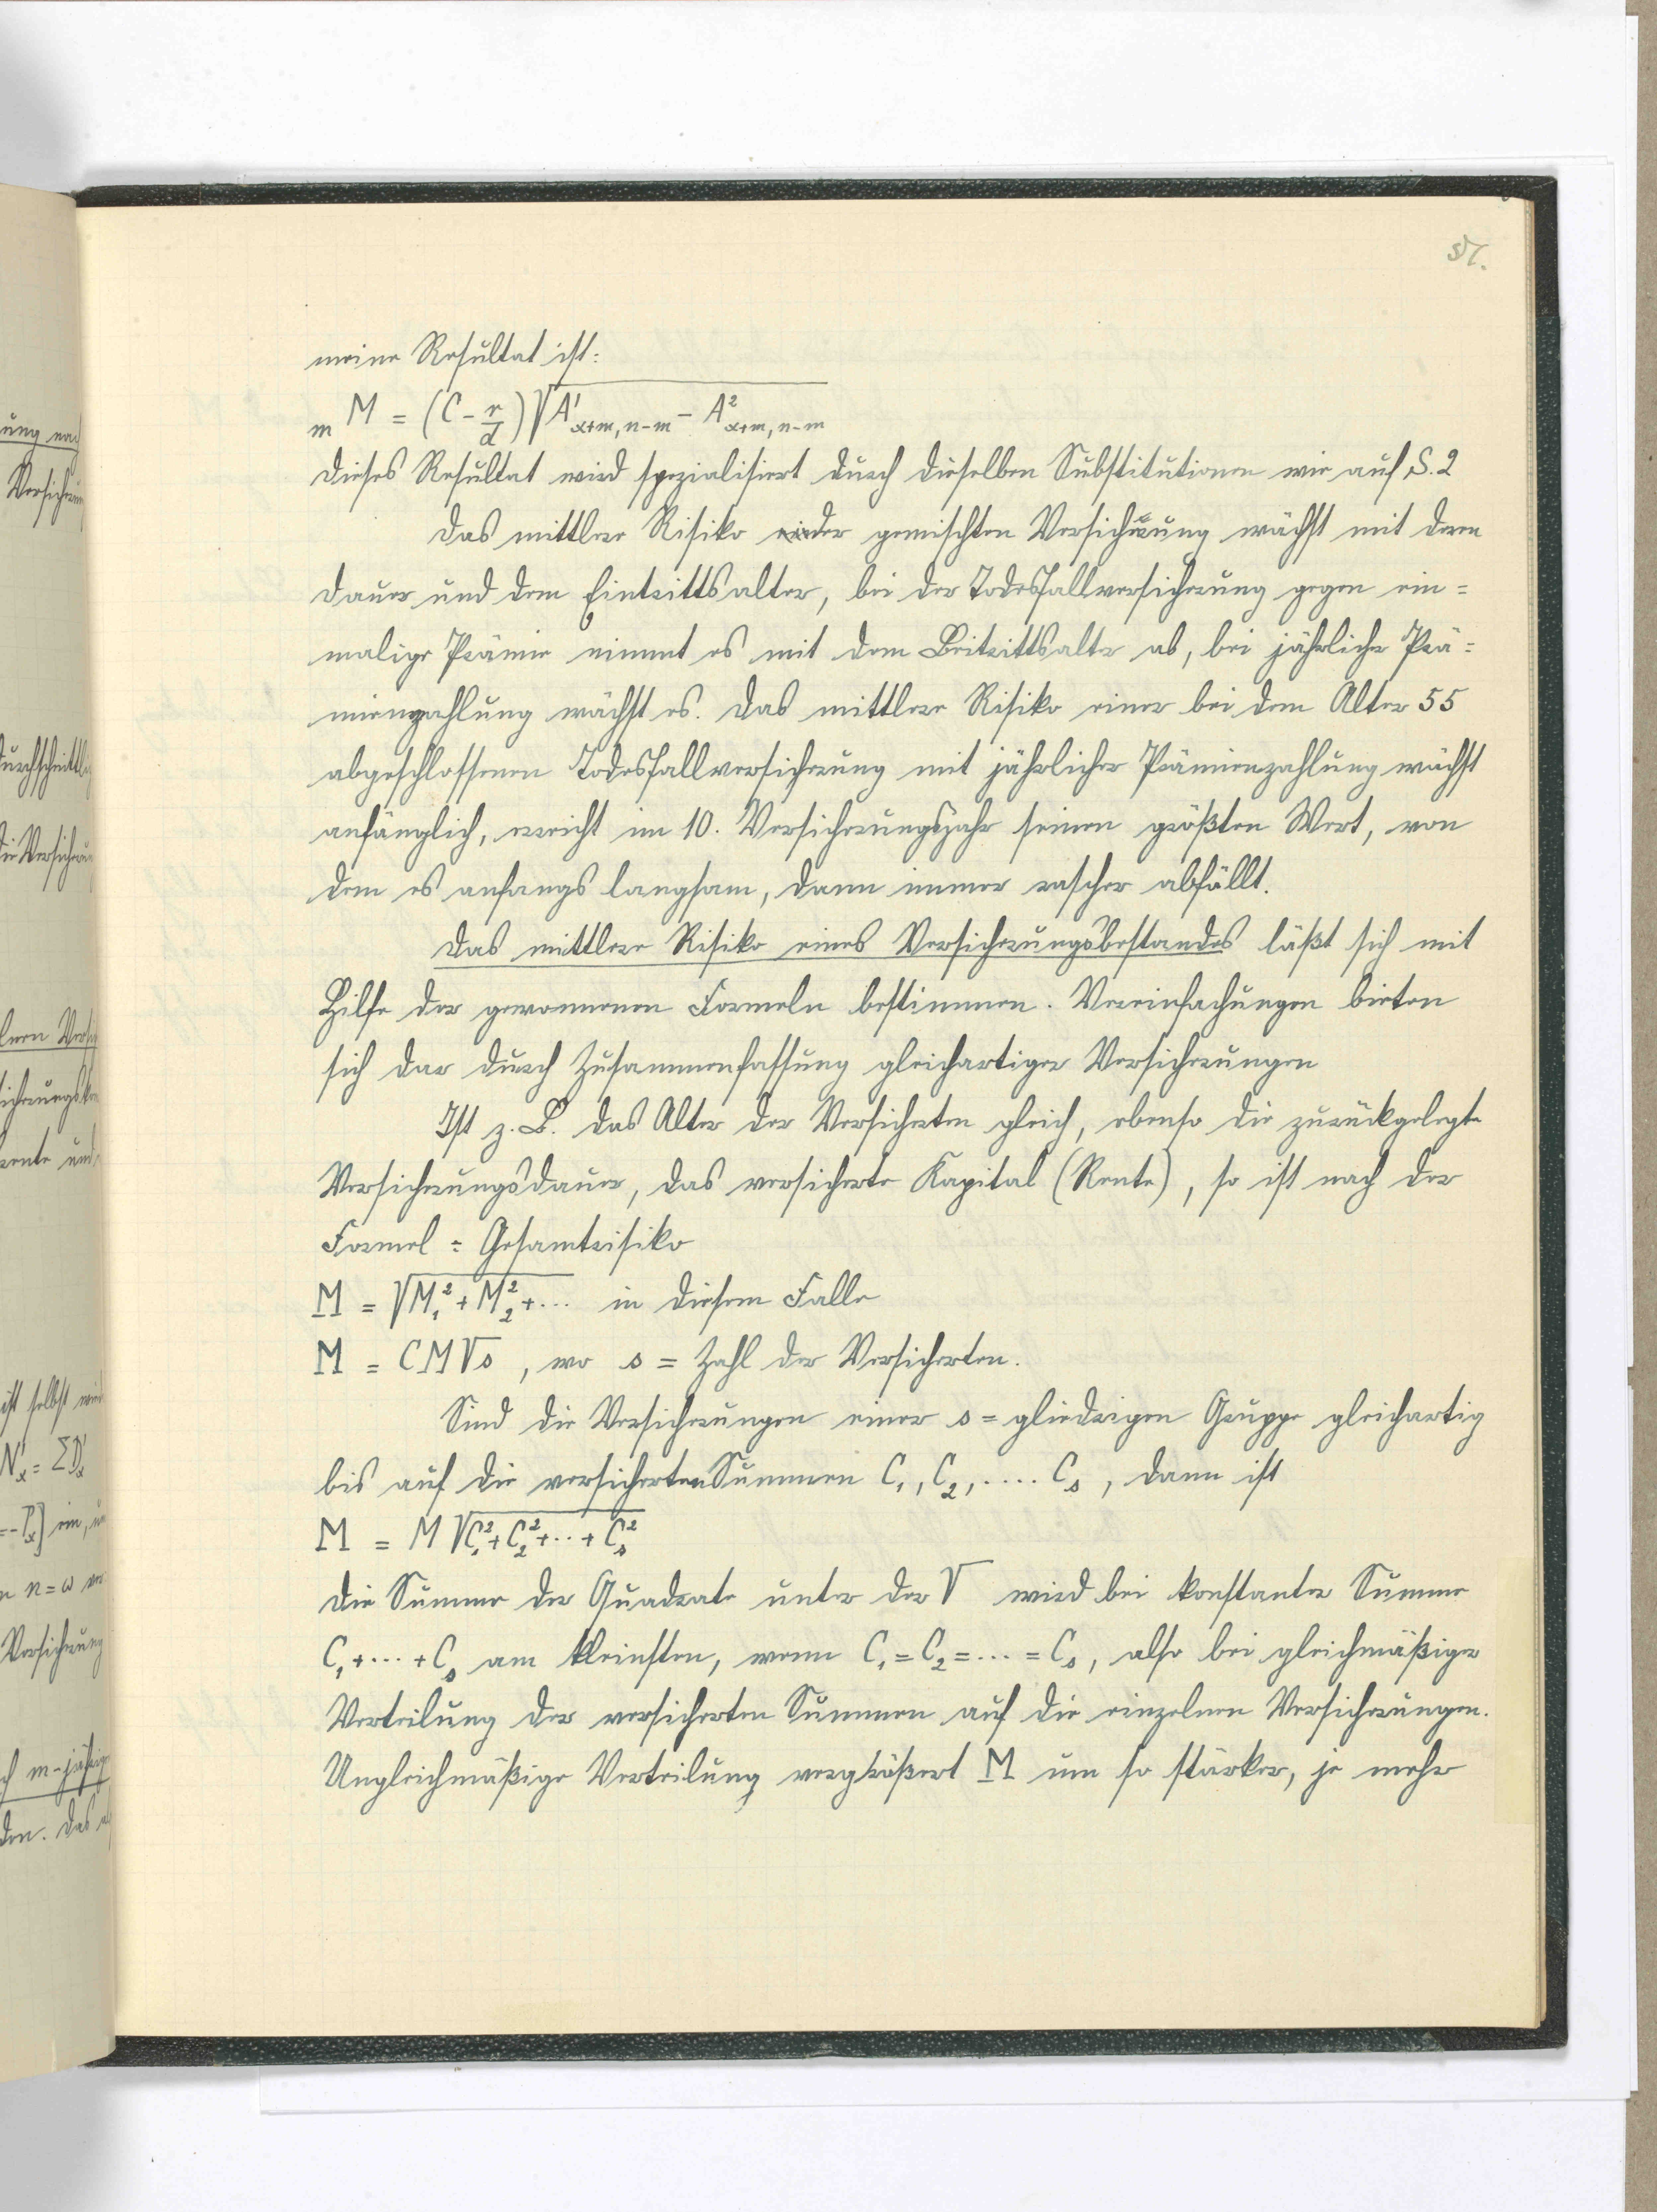 meine Resultat ist:
ₘM = (C - r/d) √(A'ₓ₊ₘ,ₙ₋ₘ - A²ₓ₊ₘ,ₙ₋ₘ)
Dieses Resultat wird spezialisiert durch dieselben Substitutionen wie auf S. 2
Das mittlere Risiko der gemischten Versicherung wächst mit deren
Dauer und dem Eintrittsalter, bei der Todesfallversicherung gegen ein=
malige Prämie nimmt es mit dem Beitrittsalter ab, bei jährlicher Prä=
mienzahlung wächst es. Das mittlere Risiko einer bei dem Alter 55
abgeschlossenen Todesfallversicherung mit jährlicher Prämienzahlung wächst
anfänglich, erreicht im 10. Versicherungsjahr seinen größten Wert, von
dem es anfangs langsam, dann immer rascher abfällt.
Das mittlere Risiko eines Versicherungsbestandes läßt sich mit
Hilfe der gewonnenen Formeln bestimmen. Vereinfachungen bieten
sich dar durch Zusammenfassung gleichartiger Versicherungen
Ist z. B. das Alter der Versicherten gleich, ebenso die zurückgelegte
Versicherungsdauer, das versicherte Kapital (Rente), so ist nach der
Formel = Gesamtrisiko
M = √(M₁² + M₂² + ...) in diesem Falle
M = CM√s , wo s = Zahl der Versicherten.
Sind die Versicherungen einer s = gliedrigen Gruppe gleichartig
bis auf die versicherten Summen C₁, C₂, .... Cₛ, dann ist
M = M √(C₁² + C₂² + ... + Cₛ²)
Die Summe der Quadrate unter der √ wird bei konstanter Summe
C₁ + ... + Cₛ am kleinsten, wenn C₁ = C₂ = ... = Cₛ, also bei gleichmäßiger
Verteilung der versicherten Summen auf die einzelnen Versicherungen.
Ungleichmäßige Verteilung vergrößert M um so stärker, je mehr